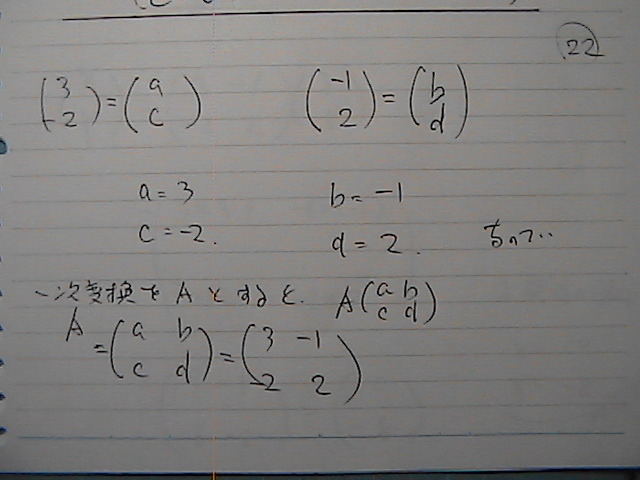 22
(3 -2) = (a c) (-1 2) = (b d)
a = 3 b = -1
c = -2. d = 2.
一次変換を A とすると. A(a b c d)
A = (a b c d) = (3 -1 -2 2)